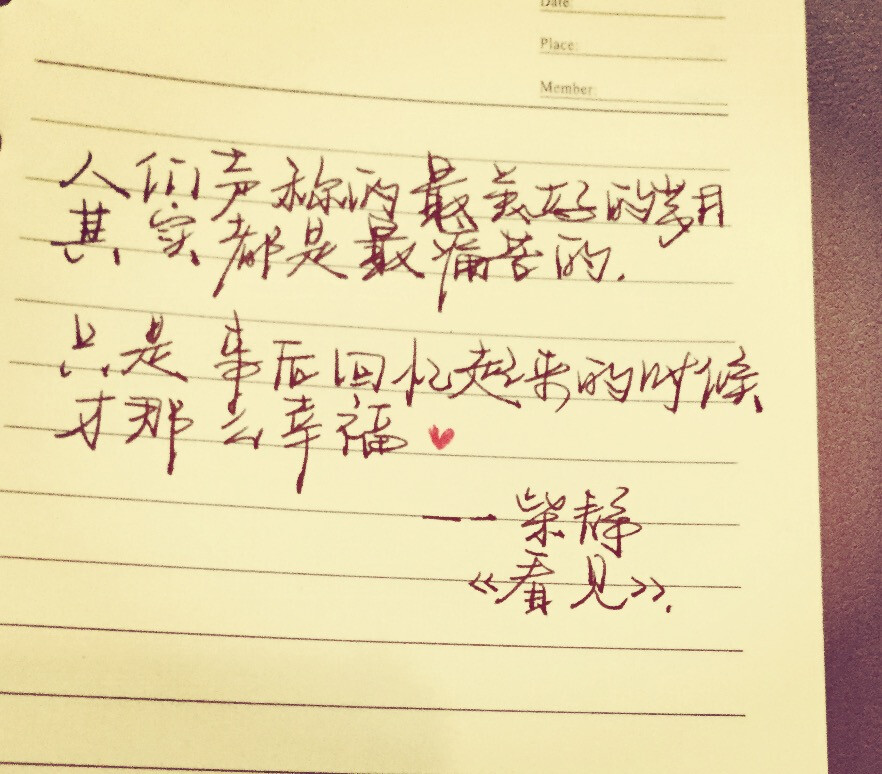 Date
Place:
Member:
人们声称的最美好的岁月
其实都是最痛苦的.
只是事后回忆起来的时候
才那么幸福
——柴静
《看见》.